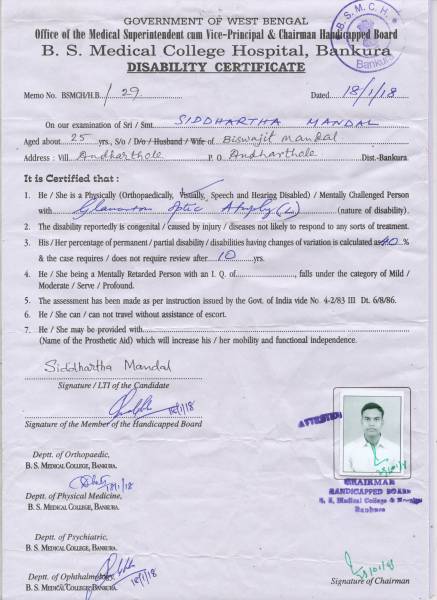 GOVERNMENT OF WEST BENGAL
Office of the Medical Superintendent cum Vice-Principal & Chairman Handicapped Board
B. S. Medical College Hospital, Bankura
DISABILITY CERTIFICATE
B. S. M. C. H.
Bankura
Memo No. BSMCH/H.B./ 29. Dated 18/1/18
On our examination of Sri / Smt. SIDDHARTHA MANDAL
Aged about 25 yrs., S/o / D/o / Husband / Wife of Biswajit Mandal
Address : Vill Andharthole P. O Andharthole Dist.-Bankura
It is Certified that :
1. He / She is a Physically (Orthopaedically, Visually, Speech and Hearing Disabled) / Mentally Challenged Person
with Optic Atrophy (nature of disability).
2. The disability reportedly is congenital / caused by injury / diseases not likely to respond to any sorts of treatment.
3. His / Her percentage of permanent / partial disability / disabilities having changes of variation is calculated as 40 %
& the case requires / does not require review after 10 yrs.
4. He / She being a Mentally Retarded Person with an I. Q. of, falls under the category of Mild /
Moderate / Serve / Profound.
5. The assessment has been made as per instruction issued by the Govt. of India vide No 4-2/83 III Dt. 6/8/86.
6. He / She can / can not travel without assistance of escort.
7. He / She may be provided with
(Name of the Prosthetic Aid) which will increase his / her mobility and functional independence.
Siddhartha Mandal
Signature / LTI of the Candidate
18/1/18
Signature of the Member of the Handicapped Board
ATTESTED
Deptt. of Orthopaedic,
B. S. MEDICAL COLLEGE, BANKURA.
18/1/18
Deptt. of Physical Medicine,
B. S. MEDICAL COLLEGE, BANKURA.
CHAIRMAN
HANDICAPPED BOARD
B. S. Medical College & Hospital
Bankura
Deptt. of Psychiatric,
B. S. MEDICAL COLLEGE, BANKURA.
18/1/18
Deptt. of Ophthalmology,
B. S. MEDICAL COLLEGE, BANKURA.
Signature of Chairman